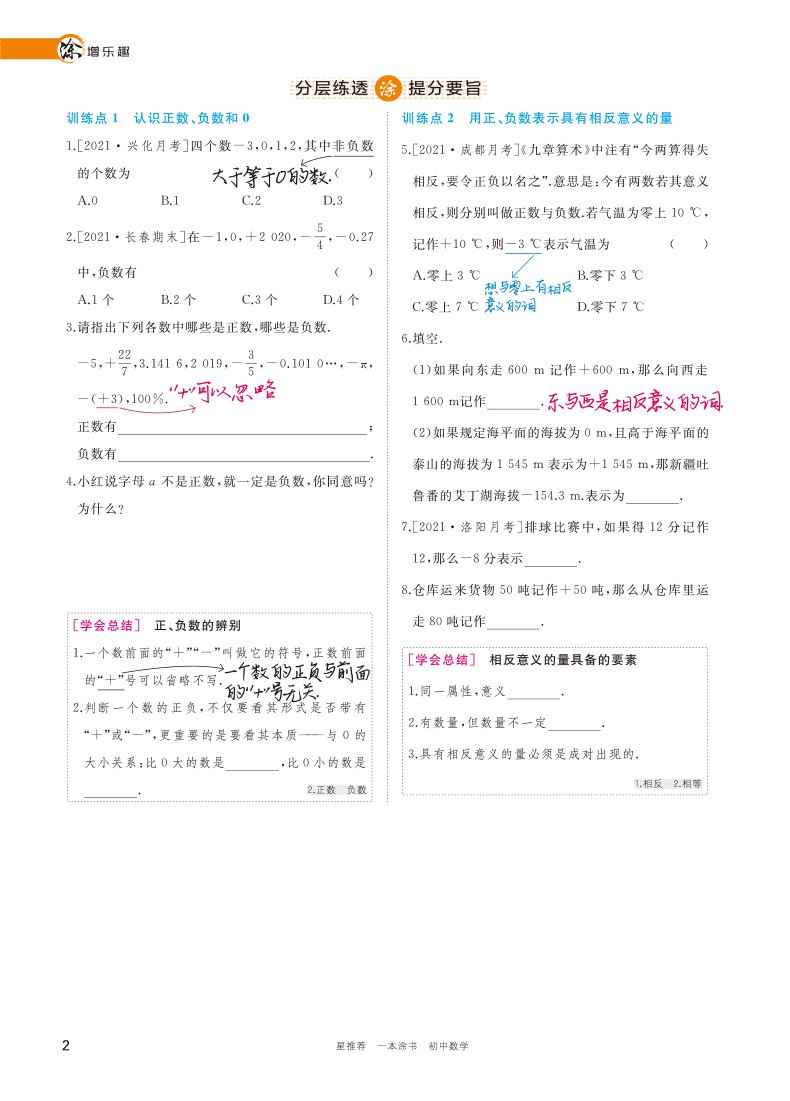 涂 增乐趣
分层练透 涂 提分要旨
训练点 1 认识正数、负数和 0
1.[2021·兴化月考]四个数-3,0,1,2,其中非负数
的个数为 ( )
大于等于0的数.
A.0 B.1 C.2 D.3
2.[2021·长春期末]在-1,0,+2 020,-5/4,-0.27
中,负数有 ( )
A.1 个 B.2 个 C.3 个 D.4 个
3.请指出下列各数中哪些是正数,哪些是负数.
-5,+22/7,3.141 6,2 019,-3/5,-0.101 0…,-π,
-(+3),100%.
“+”可以忽略
正数有____;
负数有____.
4.小红说字母 a 不是正数,就一定是负数,你同意吗?
为什么?
[学会总结] 正、负数的辨别
1.一个数前面的“+”“-”叫做它的符号,正数前面
的“+”号可以省略不写.
一个数的正负与前面
的“+”号无关.
2.判断一个数的正负,不仅要看其形式是否带有
“+”或“-”,更重要的是要看其本质——与 0 的
大小关系:比 0 大的数是____,比 0 小的数是
____.
2.正数 负数
训练点 2 用正、负数表示具有相反意义的量
5.[2021·成都月考]《九章算术》中注有“今两算得失
相反,要令正负以名之”.意思是:今有两数若其意义
相反,则分别叫做正数与负数.若气温为零上 10 ℃,
记作+10 ℃,则-3 ℃表示气温为 ( )
A.零上 3 ℃ B.零下 3 ℃
想与零上有相反
意义的词
C.零上 7 ℃ D.零下 7 ℃
6.填空.
(1)如果向东走 600 m 记作+600 m,那么向西走
1 600 m记作____.
东与西是相反意义的词.
(2)如果规定海平面的海拔为 0 m,且高于海平面的
泰山的海拔为 1 545 m 表示为+1 545 m,那新疆吐
鲁番的艾丁湖海拔-154.3 m.表示为____.
7.[2021·洛阳月考]排球比赛中,如果得 12 分记作
12,那么-8 分表示____.
8.仓库运来货物 50 吨记作+50 吨,那么从仓库里运
走 80 吨记作____.
[学会总结] 相反意义的量具备的要素
1.同一属性,意义____.
2.有数量,但数量不一定____.
3.具有相反意义的量必须是成对出现的.
1.相反 2.相等
2
星推荐 一本涂书 初中数学